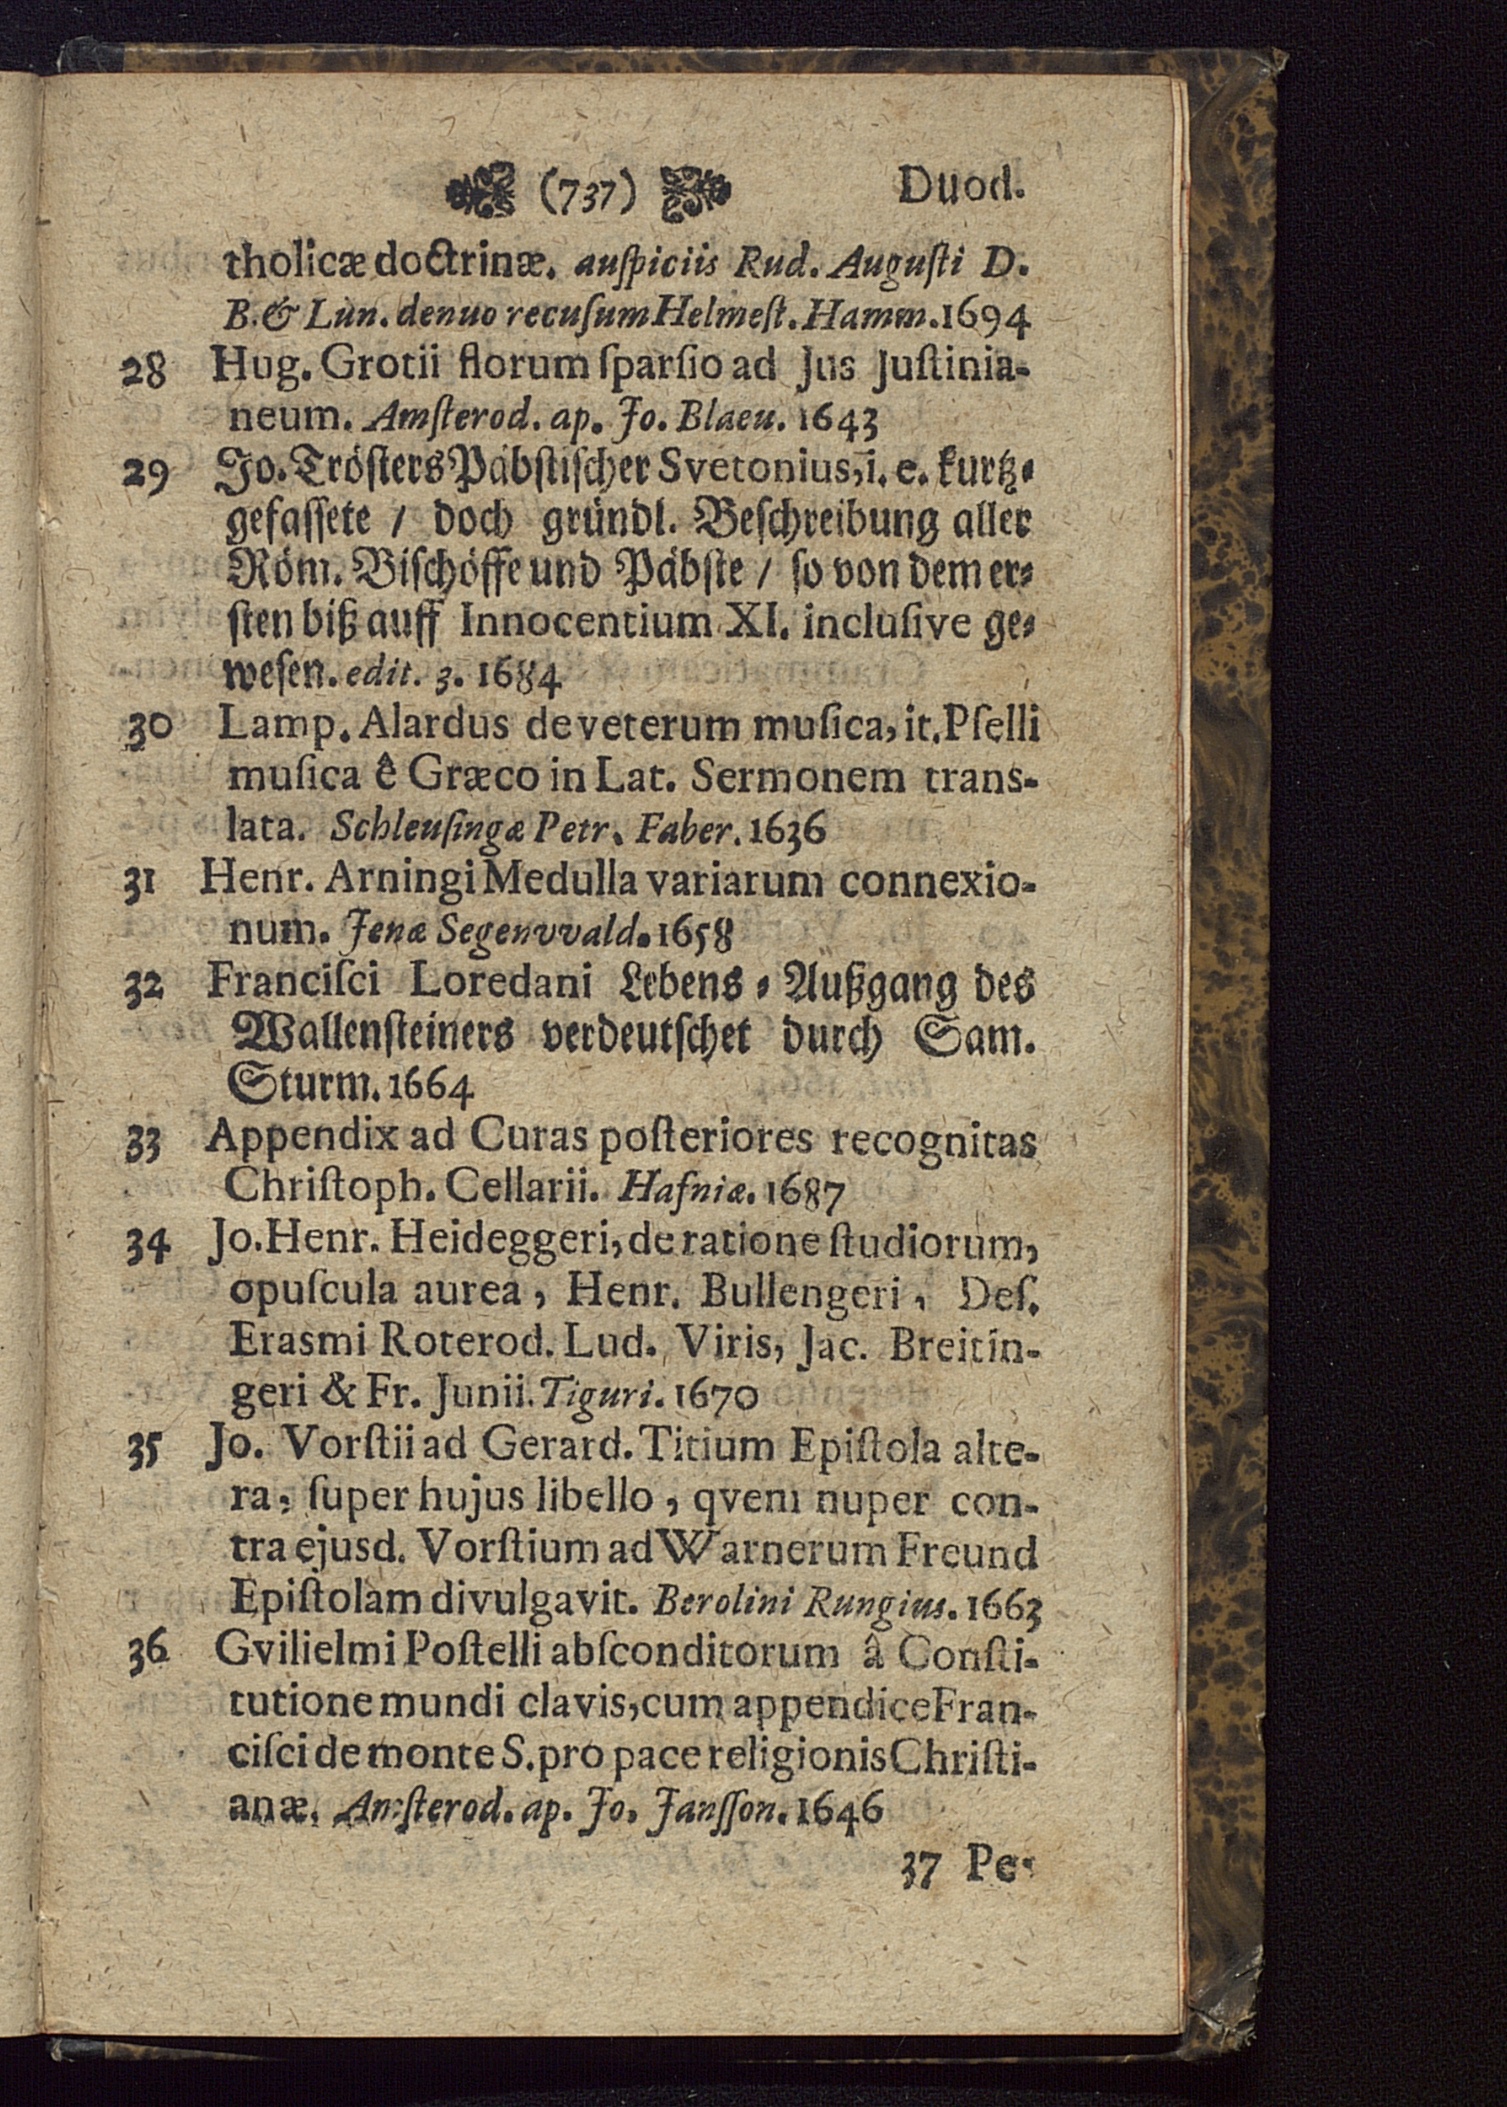 (737) Duod.
tholicæ doctrinæ. auſpiciis Rud. Auguſti D.
B. & Lun. denuo recuſum Helmeſt. Hamm. 1694
28 Hug. Grotii florum ſparſio ad Jus Juſtinia-
neum. Amſterod. ap. Jo. Blaeu. 1643
29 Jo. Tröſters Päbſtiſcher Svetonius, i. e. kurtz-
gefaſſete / doch gründl. Beſchreibung aller
Röm. Biſchöffe und Päbſte / ſo von dem er-
ſten biß auff Innocentium XI. incluſive ge-
weſen. edit. 3. 1684
30 Lamp. Alardus de veterum muſica, it. Pſelli
muſica ê Græco in Lat. Sermonem trans-
lata. Schleuſingæ Petr. Faber. 1636
31 Henr. Arningi Medulla variarum connexio-
num. Jenæ Segenvvald. 1658
32 Franciſci Loredani Lebens-Außgang des
Wallenſteiners verdeutſchet durch Sam.
Sturm. 1664
33 Appendix ad Curas poſteriores recognitas
Chriſtoph. Cellarii. Hafniæ. 1687
34 Jo. Henr. Heideggeri, de ratione ſtudiorum,
opuſcula aurea, Henr. Bullengeri, Deſ.
Erasmi Roterod. Lud. Viris, Jac. Breitin-
geri & Fr. Junii. Tiguri. 1670
35 Jo. Vorſtii ad Gerard. Titium Epiſtola alte-
ra, ſuper hujus libello, qvem nuper con-
tra ejusd. Vorſtium ad Warnerum Freund
Epiſtolam divulgavit. Berolini Rungius. 1663
36 Gvilielmi Poſtelli abſconditorum â Conſti-
tutione mundi clavis, cum appendice Fran-
ciſci de monte S. pro pace religionis Chriſti-
anæ. Amſterod. ap. Jo. Janſſon. 1646
37 Pe-